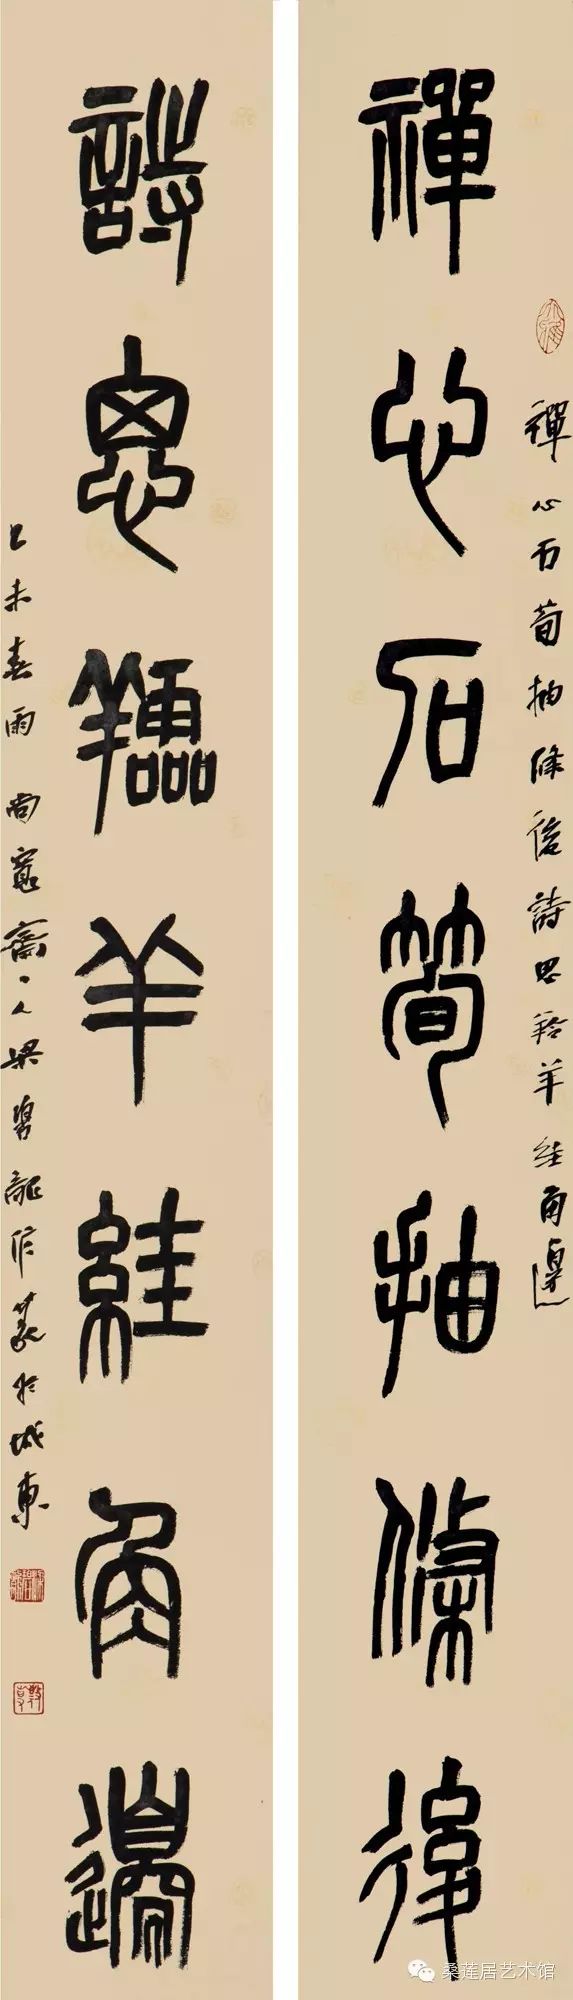 禪心石筍抽條後
禪心石筍抽條後詩思羚羊絓角邊
詩思羚羊絓角邊
乙未春雨 尚寬齋主人梁碧龍作篆於城東
桑莲居艺术馆